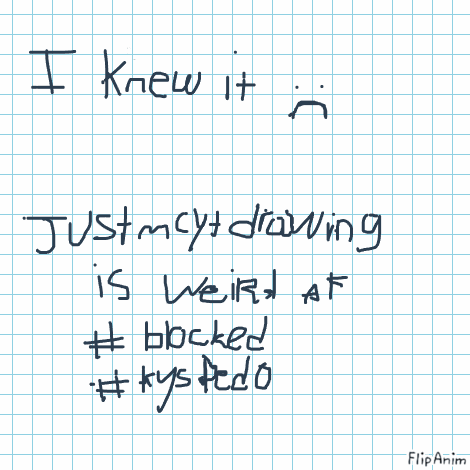 I knew it :(
Justmcytdrawing
is weird AF
# blocked
# kys Pedo
FlipAnim